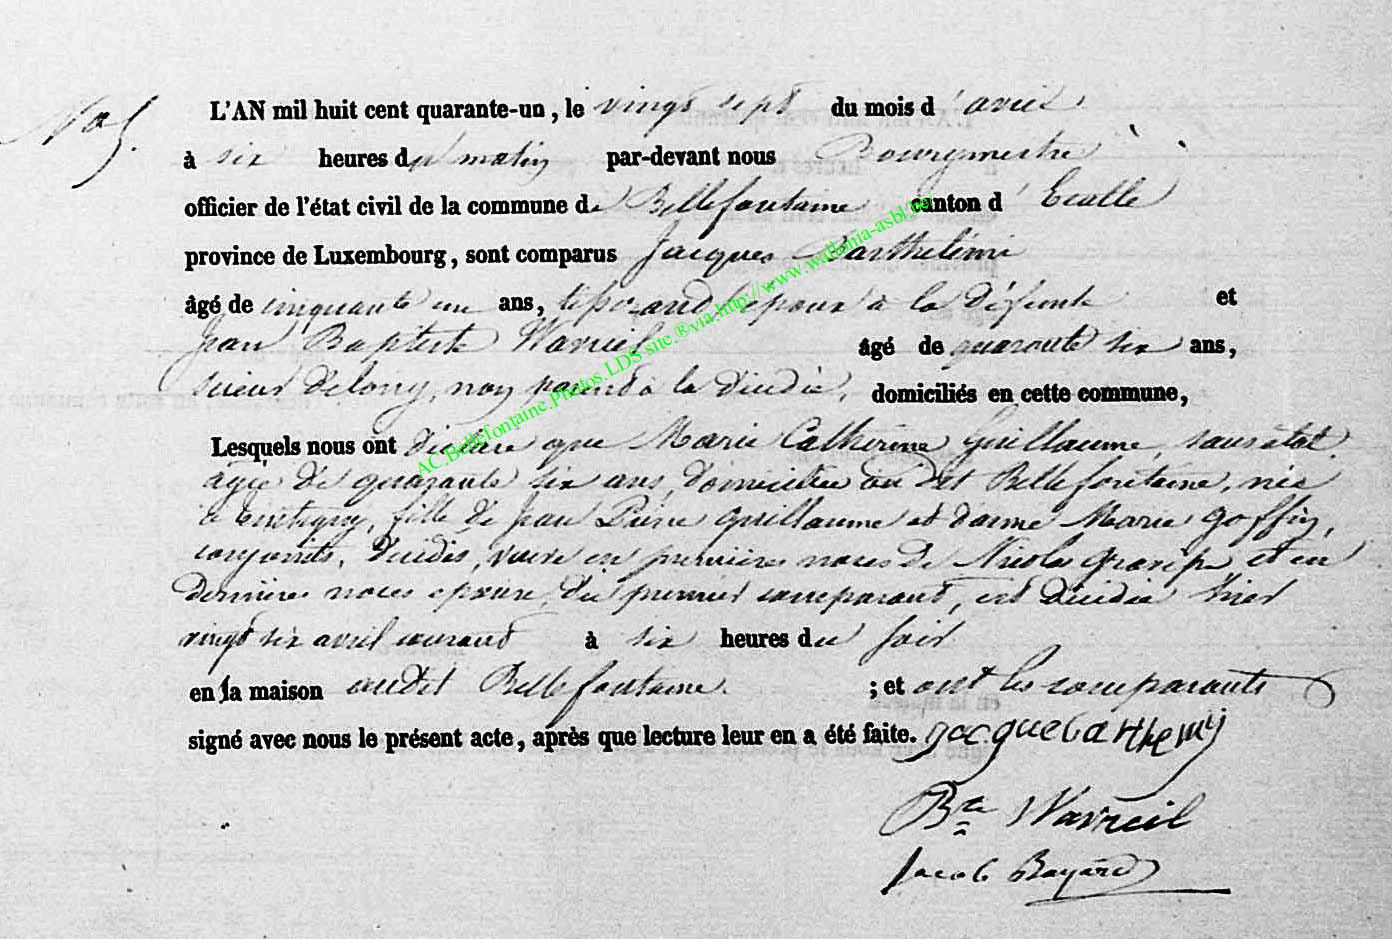 No 5.
L'AN mil huit cent quarante-un, le vingt sept du mois d'avril
à six heures du matin par-devant nous Bourgmestre
officier de l'état civil de la commune de Bellefontaine canton d'Etalle
province de Luxembourg, sont comparus Jacques Barthelémi
âgé de cinquante un ans, tisserand époux à la défunte et
Jean Baptiste Wavreil âgé de quarante six ans,
scieur de long, non parent à la décédée, domiciliés en cette commune,
Lesquels nous ont déclaré que Marie Catherine Guillaume sans état
agée de quarante six ans, domiciliée au dit Bellefontaine, née
à Tintigny, fille de Jean Pierre Guillaume et dame Marie Goffin,
conjoints, décédés, veuve en premières noces de Nicolas et en
dernières noces épouse du premier comparant, est décédée hier
vingt six avril courant à six heures du soir
en la maison audit Bellefontaine. ; et ont les comparants
signé avec nous le présent acte, après que lecture leur en a été faite.
Bte Wavreil
Jacob Bayard
AC.Bellefontaine.Photos LDS site.®via.http://www.wallonia-asbl.be/